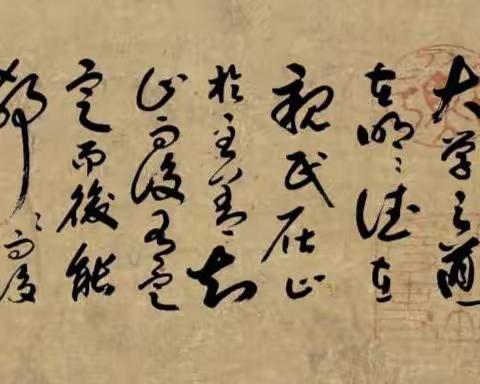 大学之道
在明〻德在
親民在止
於至善知
止而後有定
定而後能
靜〻而後